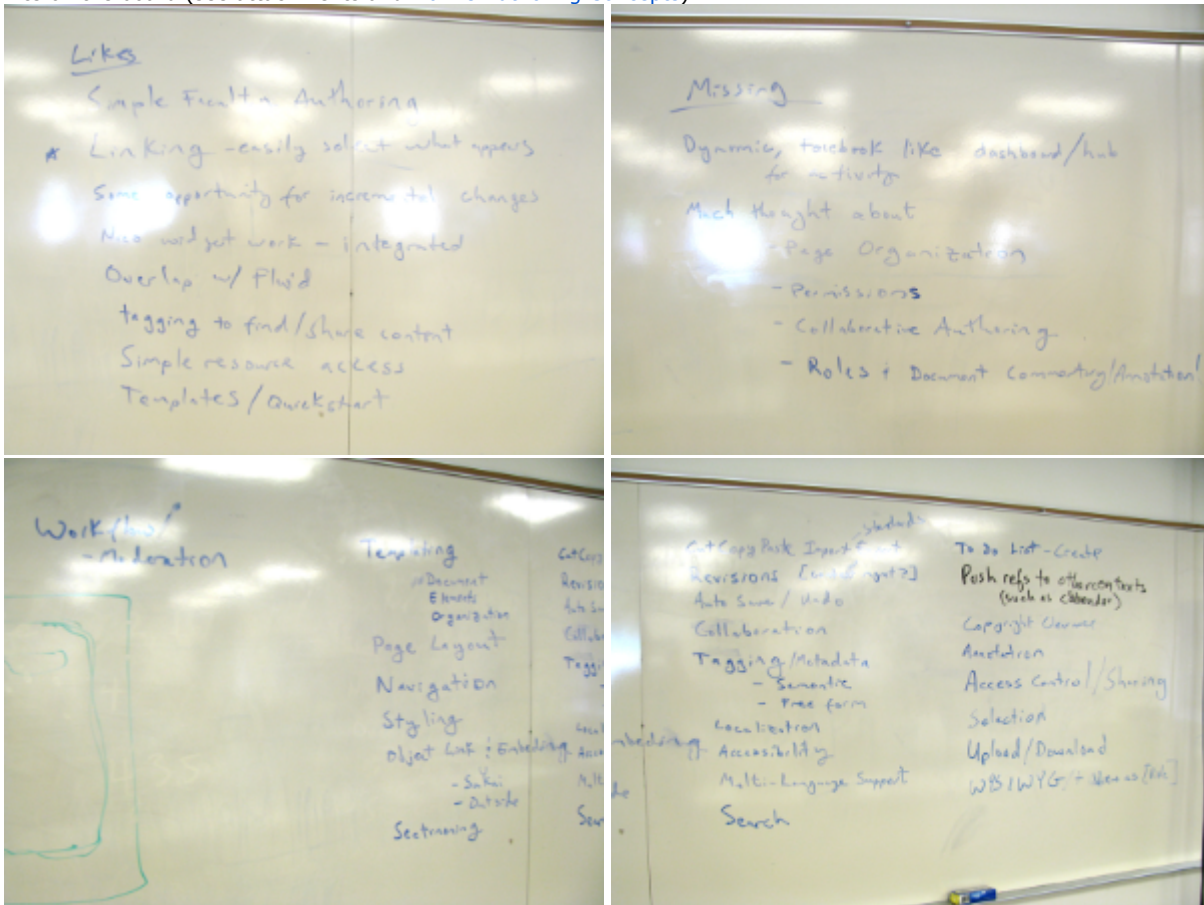 Likes
Simple Faculty Authoring
* Linking - easily select what appears
Some opportunity for incremental changes
Nice widget work - integrated
Overlap w/ Fluid
tagging to find/share content
Simple resource access
Templates/Quickstart
Missing
Dynamic, facebook like dashboard/hub
for activity
Much thought about
- Page Organization
- Permissions
- Collaborative Authoring
- Roles + Document Commentary/Annotation
Workflow/
- Moderation
Templating
Document
Elements
Organization
Page Layout
Navigation
Styling
Object Link & Embedding
- Sakai
- Outside
Sectioning
standards
Cut Copy Paste Import
Revisions
Auto Save / Undo
Collaboration
Tagging/Metadata
- Semantic
- Free form
Localization
Accessibility
Multi-Language Support
Search
To do List - Create
Push refs to other contexts
(such as calendar)
Copyright Clearance
Annotation
Access Control/Sharing
Selection
Upload/Download
WYSIWYG